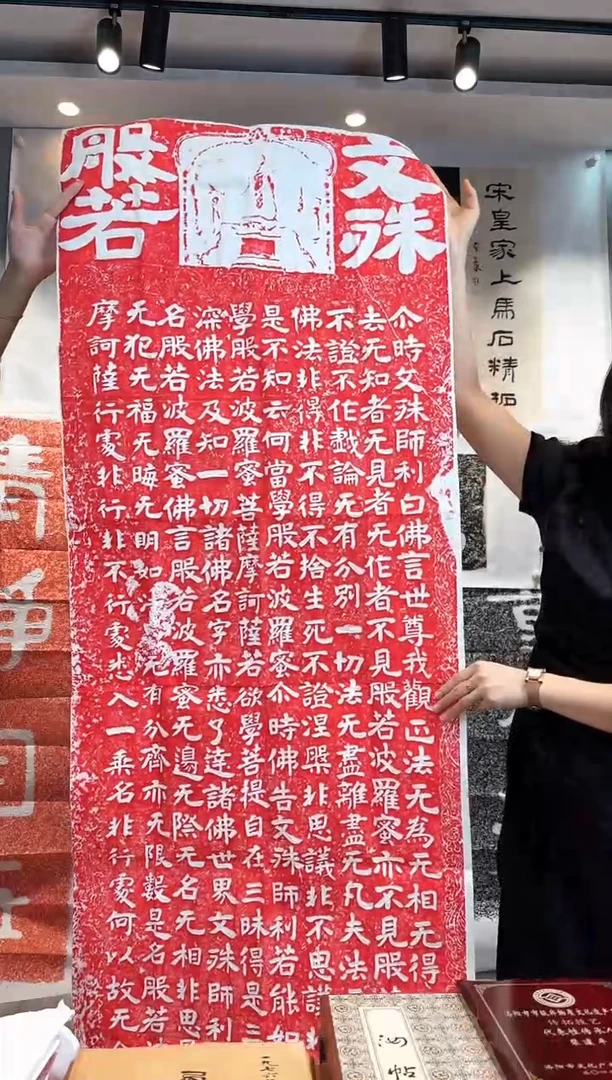 文殊
般若
尒時文殊師利白佛言世尊我觀正法无為无相无得
去无知者无見者无作者不見般若波羅蜜亦不見般
不證不作戲論无有分別一切法无盡離盡无凡夫法
佛法非得非不得不捨生死不證涅槃非思議非不思議
是不知云何當學般若波羅蜜尒時佛告文殊師利若能如
學般若波羅蜜菩薩摩訶薩若欲學菩提自在三昧得是三
深佛法及知一切諸佛名字亦悉了達諸佛世界文殊師利
名般若波羅蜜佛言般若波羅蜜无邊无際无名无相非思
无犯无福无晦无明如法无有分齊亦无限數是名般若
摩訶薩行處非行非不行處悉入一乘名非行處何以故无
宋皇家上馬石精拓
清淨
汝帖
一九七六